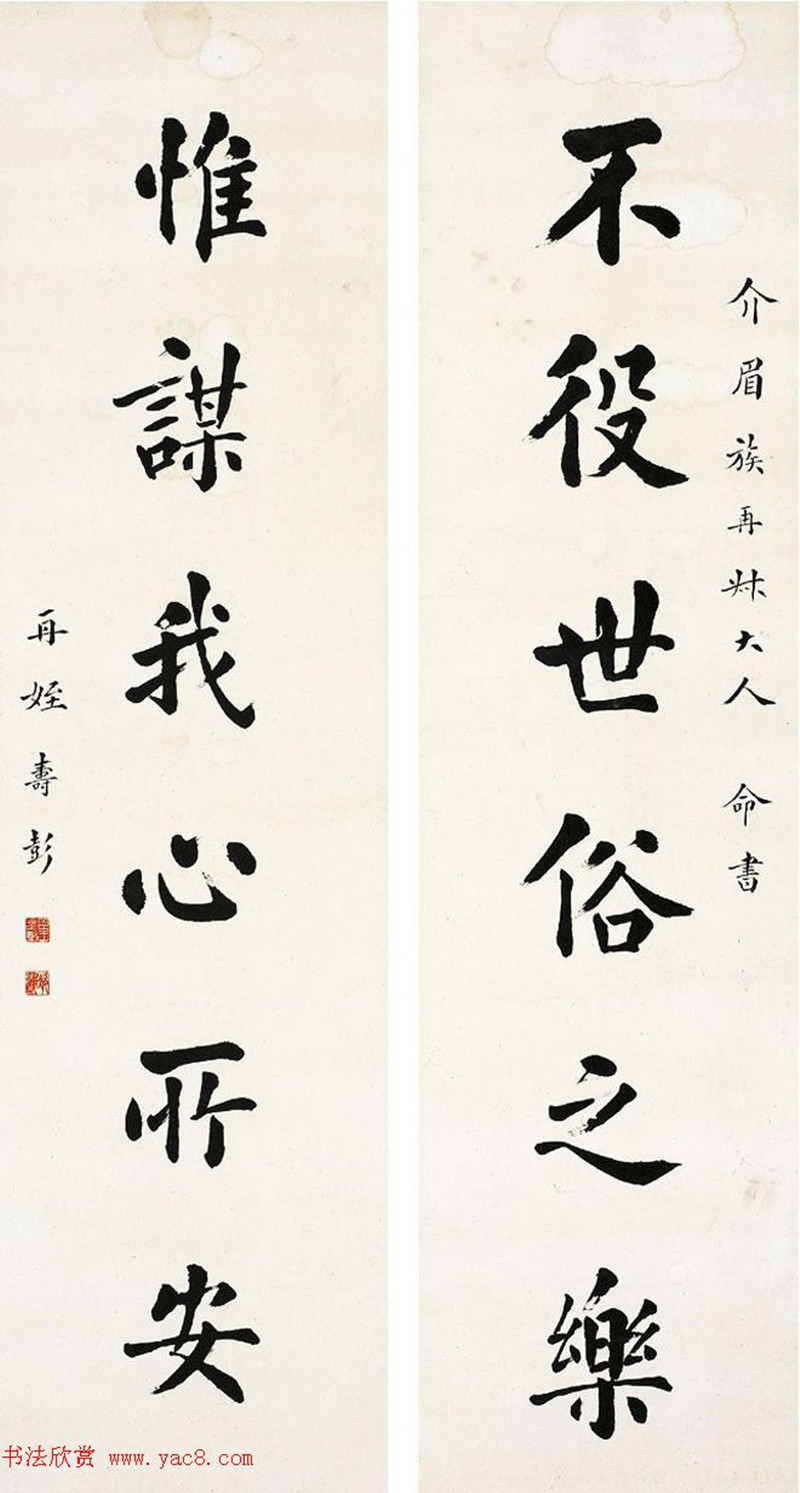 介眉族再叔大人 命書
不役世俗之樂
惟謀我心所安
再姪壽彭
书法欣赏 www.yac8.com